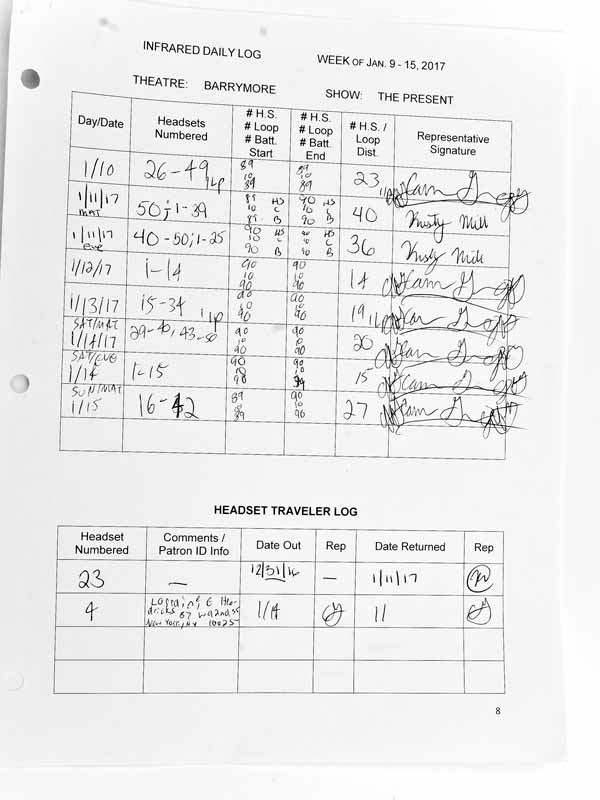 INFRARED DAILY LOG WEEK OF JAN. 9 - 15, 2017
THEATRE: BARRYMORE SHOW: THE PRESENT
Day/Date
Headsets
Numbered
# H.S.
# Loop
# Batt.
Start
# H.S.
# Loop
# Batt.
End
# H.S. /
Loop
Dist.
Representative
Signature
1/10
26-49
1LP
89
10
89
89
10
89
23
1/11/17
MAT
50; 1-39
89 HS
10 L
89 B
90 HS
90 L
90 B
40
Kristy Mill
1/11/17
eve
40-50; 1-25
90 HS
10 L
90 B
90 HS
10 L
90 B
36
Kristy Mill
1/12/17
1-14
90
10
90
90
10
90
14
1/13/17
15-34
1LP
90
10
90
90
10
90
19
SAT/MAT
1/14/17
29-40, 43-50
90
10
90
90
10
90
20
SAT/EVE
1/14
1-15
90
10
90
90
10
15
SUN/MAT
1/15
16-42
89
10
89
90
10
90
27
HEADSET TRAVELER LOG
Headset
Numbered
Comments /
Patron ID Info
Date Out
Rep
Date Returned
Rep
23
—
12/31/16
—
1/11/17
4
New York, NY 10025
1/14
11
8